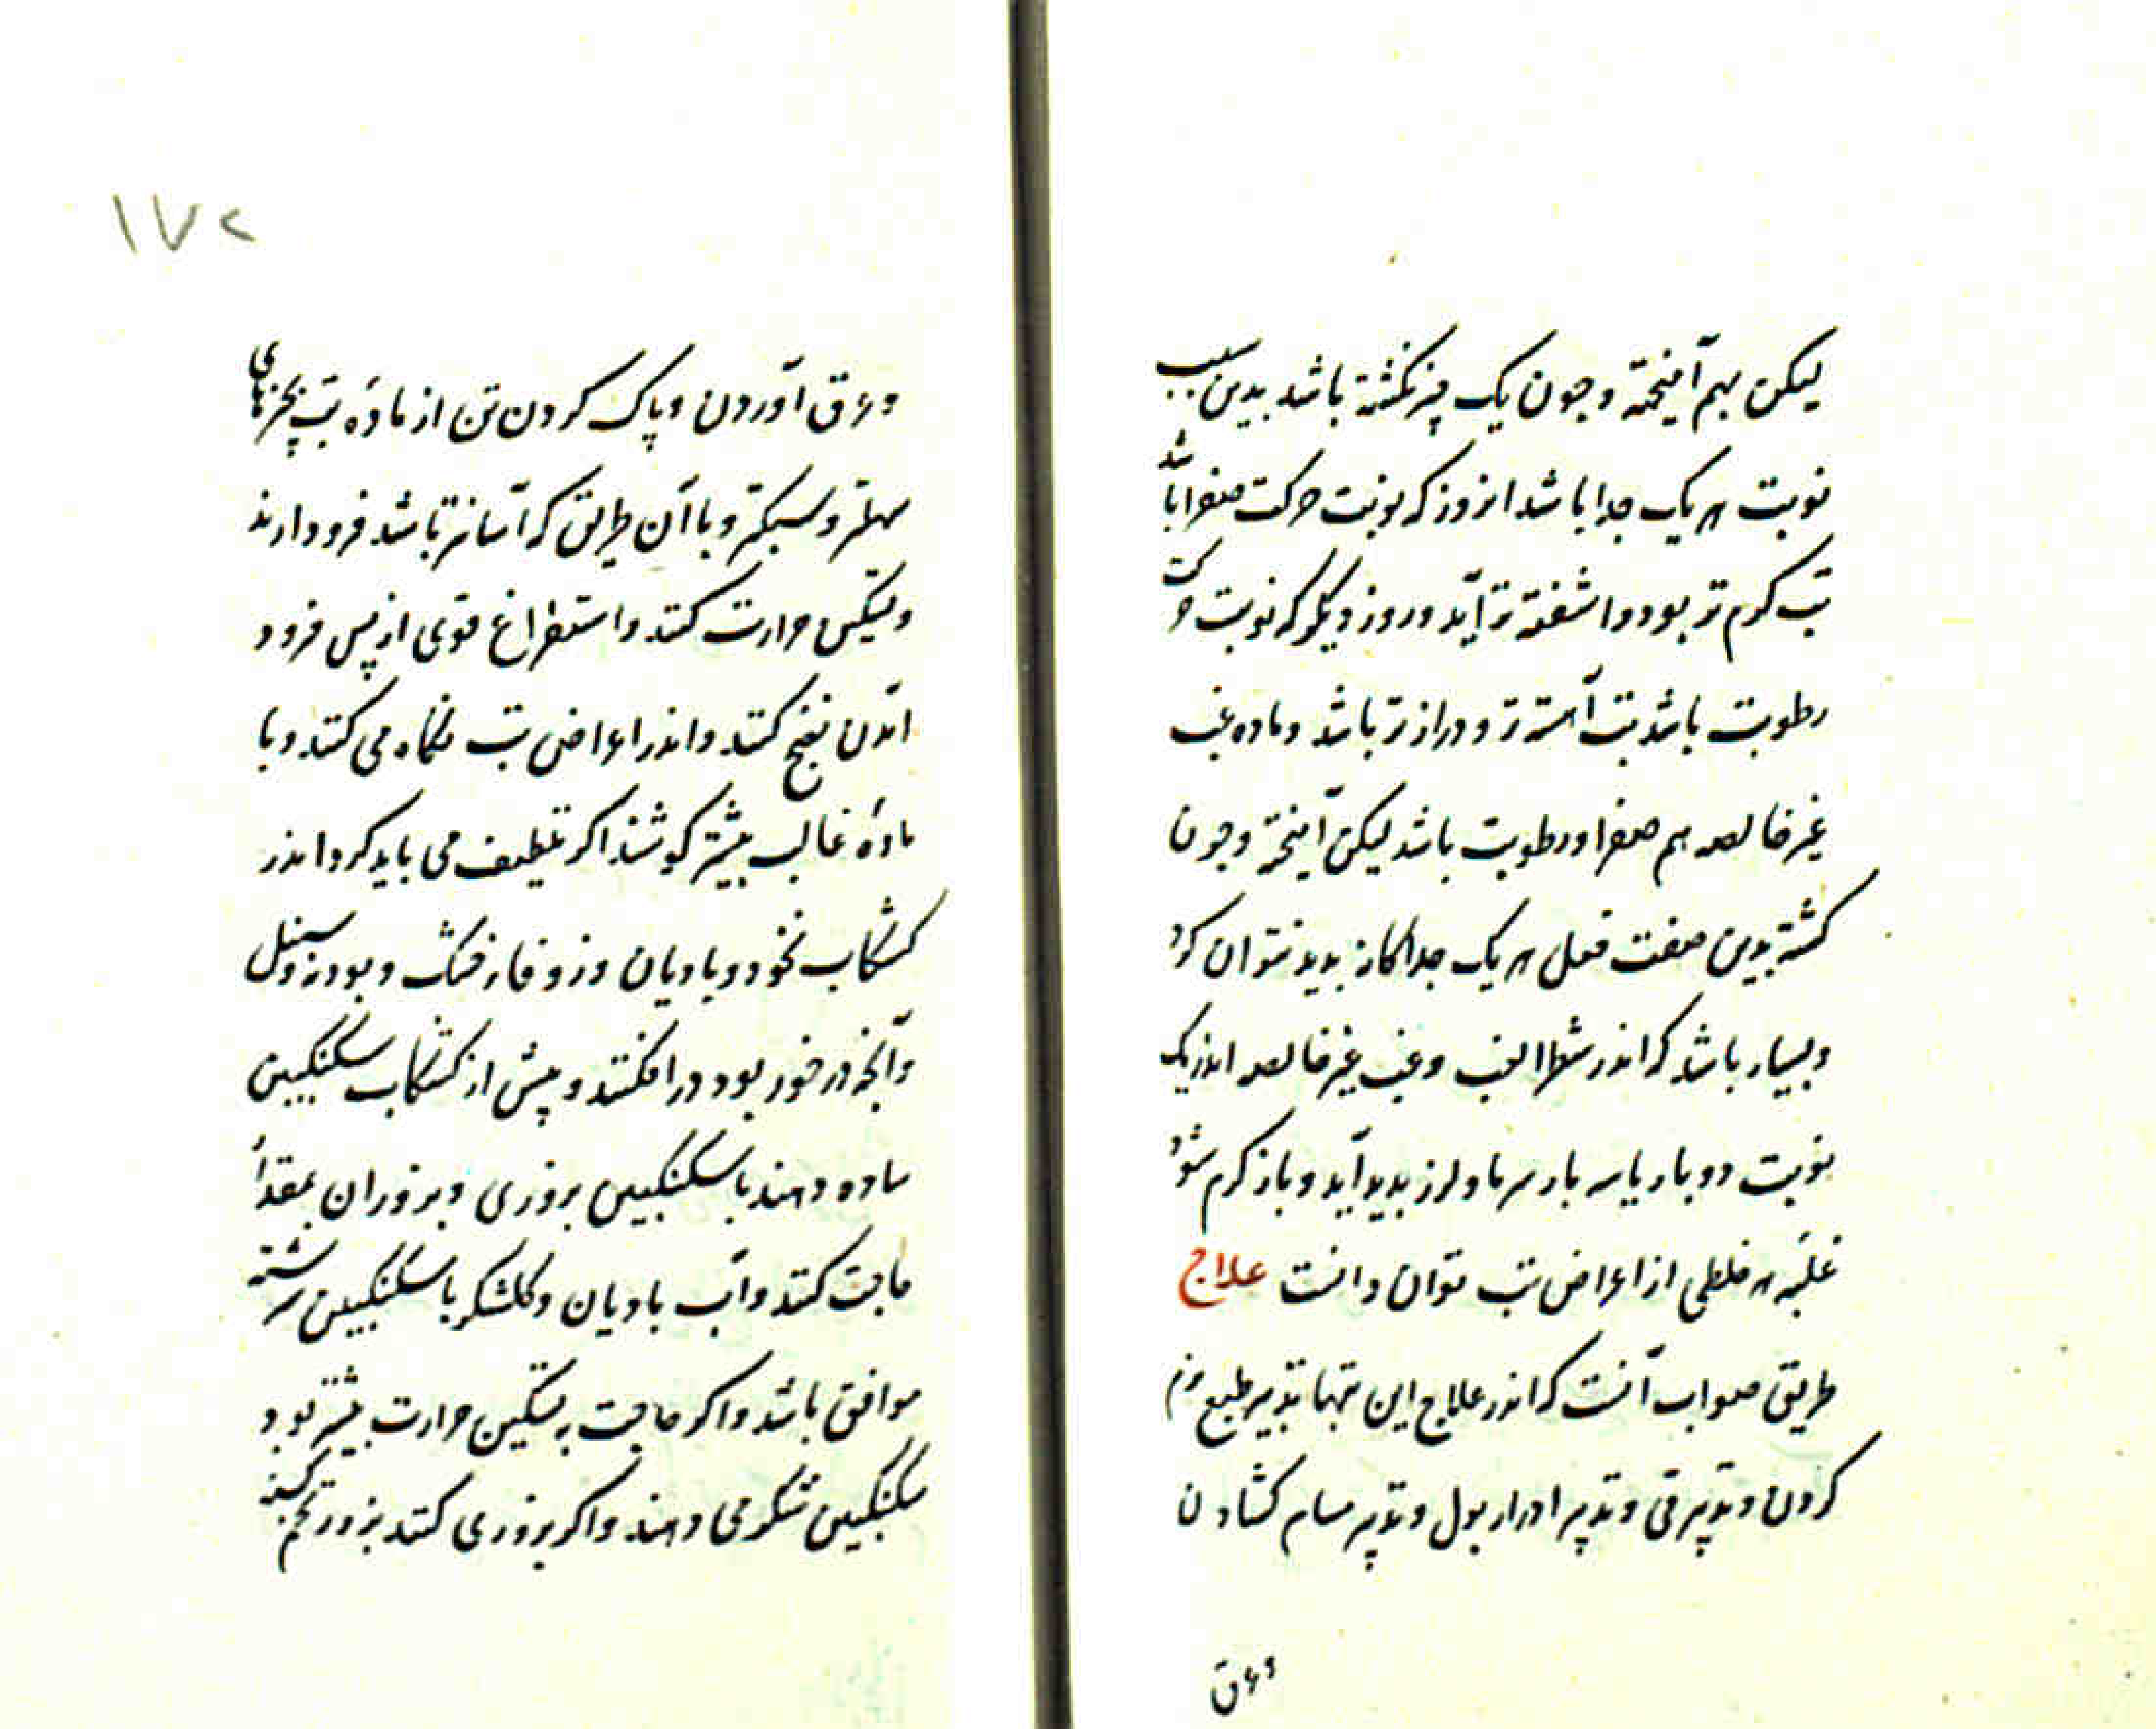 لیکن بهم آمیخته و جون یک چیز نکشته باشد بدین سبب
نوبت هر یک جدا باشد انروز که نوبت حرکت صفرا باشد
تب کرم تر بود و اشفته تر آید و روز دیکر که نوبت حرکت
رطوبت باشد تب آهسته تر و دراز تر باشد و ماده غب
غیر خالصه هم صفرا و رطوبت باشد لیکن آمیخته و جون
کشته بدین صفت فعل هر یک جداکانه بدید نتوان کرد
و بسیار باشد که اندر شطر الغب و غب غیر خالصه اندر یک
نوبت دو بار یا سه بار سرما و لرز بدید آید و باز کرم شود
غلبه هر خلطی از اعراض تب توان دانست علاج
طریق صواب آنست که اندر علاج این تبها تدبیر طبع نرم
کردن و تدبیر قی و تدبیر ادرار بول و تدبیر مسام کشادن
وعرق
۱۷۲
وعرق آوردن و پاک کردن تن از مادهٔ تب بچیزهای
سهلتر و سبکتر و با آن طریق که آسانتر باشد فرود ارند
و تسکین حرارت کنند و استفراغ قوی از پس فرود
امدن نضج کنند و اندر اعراض تب نکاه می کنند و با
مادهٔ غالب بیشتر کوشند اکر تلطیف می باید کرد اندر
کشکاب نخود و بادیان و زوفا خشک و بودنه و سنبل
و آنچه در خور بود در افکنند و پیش از کشکاب سکنکبین
ساده دهند با سکنکبین بزوری و بزوران بمقدار
حاجت کنند و آب بادیان و کلشکر با سکنکبین سرشته
موافق باشد و اکر حاجت به تسکین حرارت بیشتر بود
سکنکبین شکر می دهند و اکر بزوری کنند بزور تخم